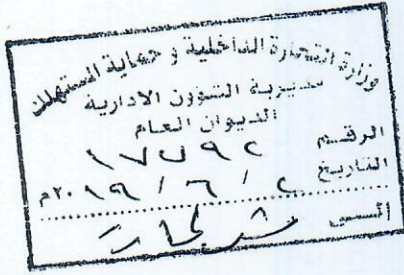 وزارة التجارة الداخلية و حماية المستهلك
مديرية الشؤون الادارية
الديوان العام
الرقم
التاريخ ٢ / ٦ / ٢٠١٩م